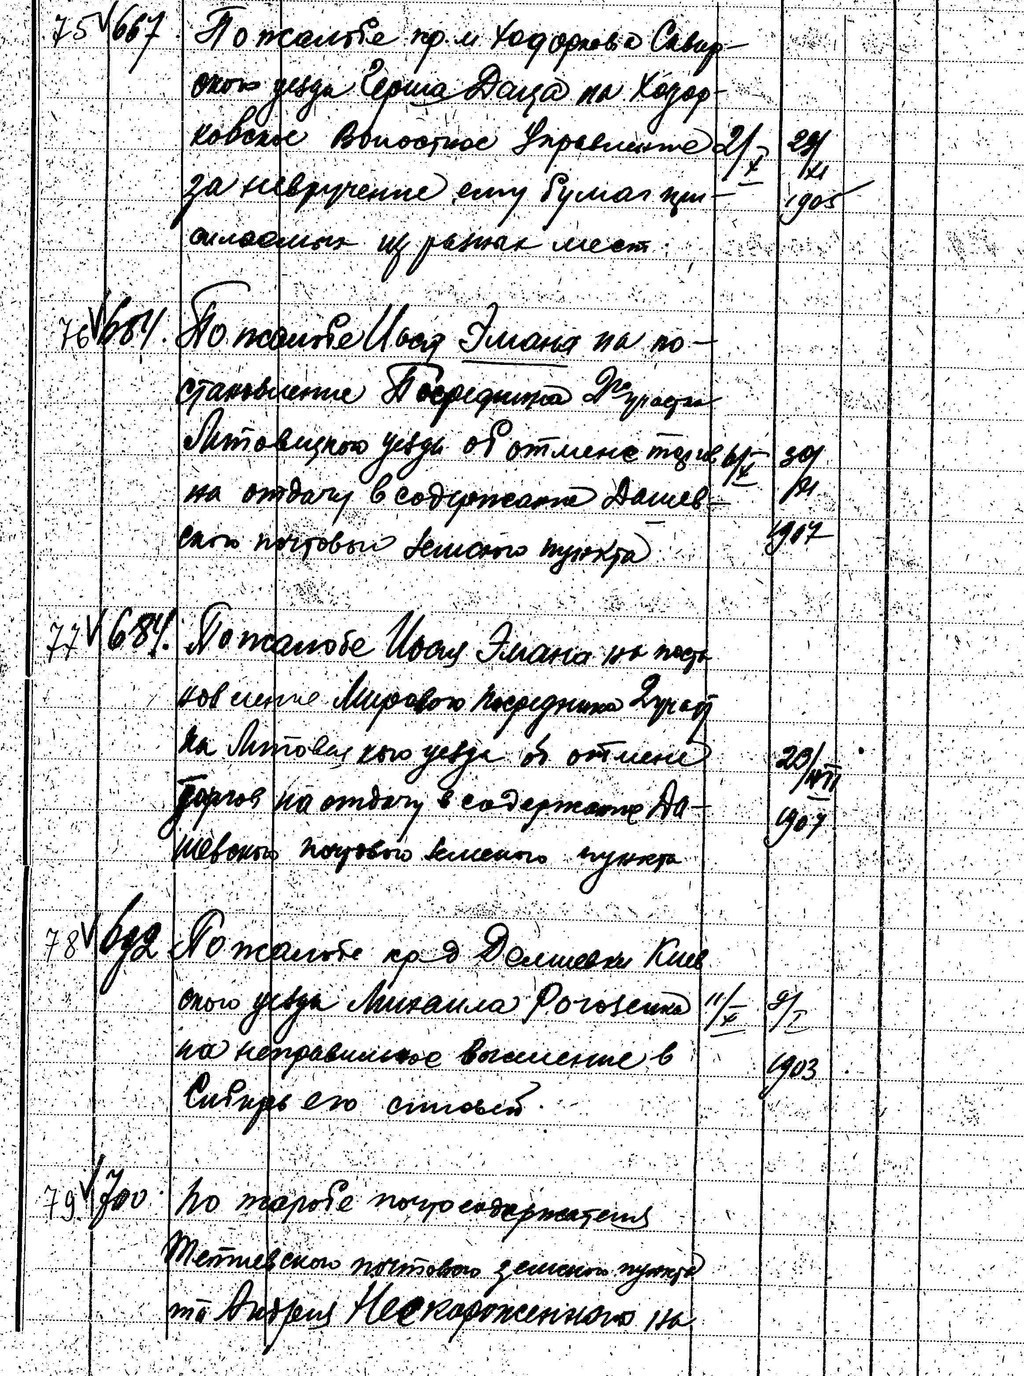 75 667. По жалобе пр. м Ходоркова Сквир-
ского уезда Герша Даца на Ходор-
ковское Волостное Управление 2/X 29/XI
за невручение ему бумаг при- 1905
сылаемых из разных мест.
76 684. По жалобе Иося Эмана на по-
становление Посредника 2го участка
Липовецкого уезда об отмене торгов 6/X 30/XI
на отдачу в содержание Дашев-
ского почтового земского пункта 1907
77 684. По жалобе Иося Эмана на поста
новление Мирового посредника 2 участ
ка Липовецкого уезда об отмене 20/VII
торгов на отдачу в содержание Да- 1907
шевского почтового земского пункта
78 692 По жалобе кр д Демиевки Киев
ского уезда Михаила Рогозенка 11/X 9/I
на неправильное выселение в 1903
Сибирь его сыновей.
79 700. По жалобе почтосодержателя
Тетиевского почтового земского пункта
та Андрея Нескороженного на